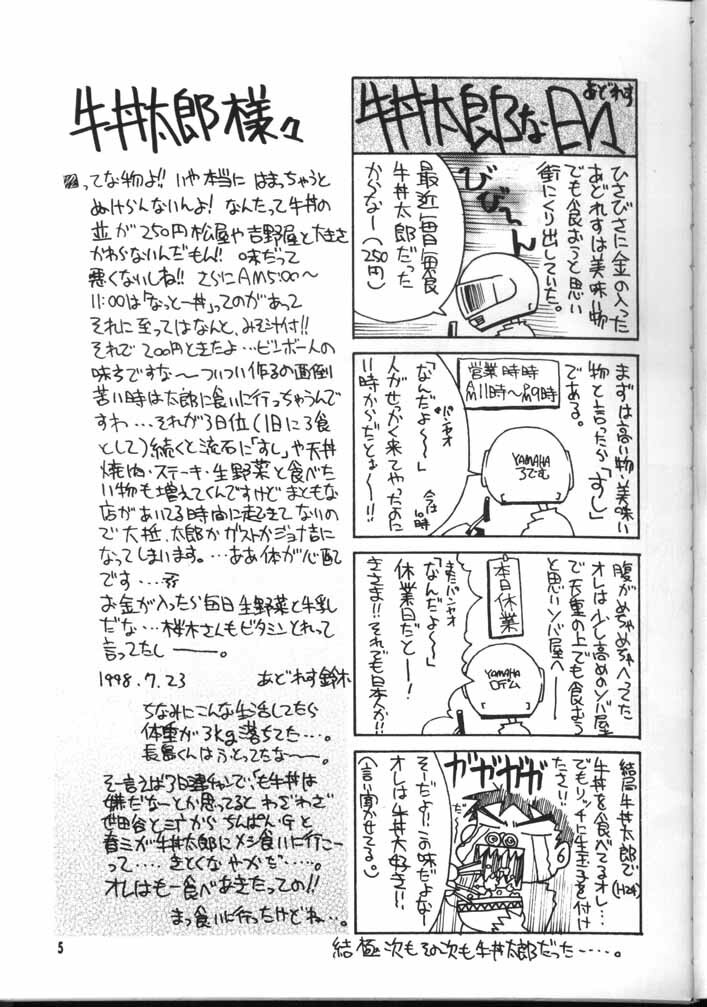 あどれす
牛丼太郎な日々
ひさびさに金の入った
あどれすは美味い物
でも食おうと思い
街にくり出していた。
びびーん
最近毎日毎食
牛丼太郎だった
からなー(250
円)
まずは高い物・美味い
物と言ったら「すし」
である。
営業時時
AM11時〜PM9時
「なんだよ〜〜」
パンヤオ
人がせっかく来てやったのに
11時からだとぉ〜!!
今は10時
YAMAHA
ろでむ
腹がめちゃめちゃへってた
オレは少し高めのソバ屋
で天重の上でも食おう
と思いソバ屋へ──
本日休業
またパンヤオ
「なんだよ〜〜」
休業日だと──!
きさま!!それでも日本人か!!
YAMAHA
ロデム
結局牛丼太郎で
(H24)
牛丼を食べてるオレ…
でもリッチに生玉子を付け
たさ!!
ガガガガ
そーだよ!!この味だよなー
オレは牛丼大好き!!
(言い聞かせてる。)
結極次もその次も牛丼太郎だった……。
牛丼太郎様々
ってな物よ!!いや本当にはまっちゃうと
ぬけらんないんよ!なんたって牛丼の
並が250円松屋や吉野屋と大きさ
かわらないんだもん!!味だって
悪くないしね!!さらにAM5:00〜
11:00は「なっとー丼」ってのがあって
それに至ってはなんと、みそ汁付!!
それで200円ときたよ…ビンボー人の
味方ですな〜ついつい作るの面倒
苦い時は太郎に食いに行っちゃうんで
すわ…それが3日位(1日に3食
として)続くと流石に「すし」や天丼
焼肉・ステーキ・生野菜と食べた
い物も増えてくんですけどまともな
店があいてる時間に起きてないの
で大抵、太郎かガストかジョナ吉に
なってしまいます。…ああ体が心配
です…
お金が入ったら毎日生野菜と牛乳
だな…桜木さんもビタミンとれって
言ってたし───。
1998.7.23 あどれす鈴木
ちなみにこんな生活してたら
体重が3kg落ちてた…。
長島くんはふとってたな〜〜。
そー言えば3日連チャンで、「も牛丼は
嫌だなーとか思ってると わざわざ
世田谷と三丁から ちんぱん・Gと
春ミが牛丼太郎にメシ食いに行こー
って……きとくなやかだ……。
オレはもー食べあきたっての!!
まっ食いに行ったけどね…。
5